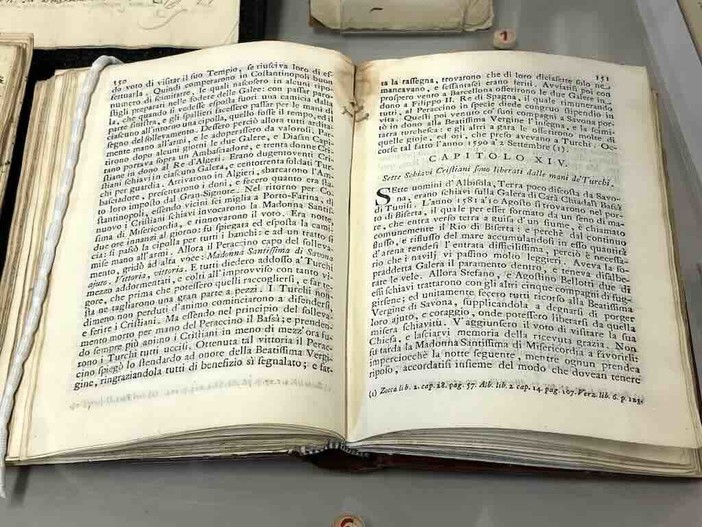 150
do voto di visitar il suo Tempio, se riusciva loro di ef-
fettuarla. Quindi comperarono in Costantinopoli buon
numero di scimitarre, le quali nascosero in alcuni ripo-
stigli preparati nelle fodere delle Galee: con passar paro-
la, che quando si vedesse esposta fuori una camicia dalla
parte sinistra, e gli spallieri facessero passar per le mani di
ciascuno all'intorno una cipolla, quello fosse il tempo, ed il
segno del sollevamento. Dessero perciò allora tutti ardita-
mente mano all'armi, e le adoperassero da valorosi. Par-
tirono dopo alcuni giorni le due Galere, e
portava sopra un Ambasciadore, e trenta donne Cri-
stiane in dono al Re d'Algieri. Erano dugenventi Cri-
stiani schiavi in ciascuna Galera, e centotrenta soldati Tur-
chi per guardia. Arrivarono in Algieri, sbarcarono l'Am-
basciadore, presentarono i doni, e fecero quanto era sta-
to loro imposto dal Gran-Signore. Nel ritorno per Co-
stantinopoli, essendo vicini sei miglia a Porto-Farina, di
nuovo i Cristiani schiavi invocarono la Madonna Santis-
sima di Misericordia, e rinnovarono il voto. Era notte,
due ore innanzi al giorno: fu spiegata ed esposta la cami-
cia: si passò la cipolla per tutti i banchi: e ad un tratto si
mise mano all'armi. Allora il Peraccino capo del solleva-
mento, gridò ad alta voce: Madonna Santissima di Savona
ajuto. Vittoria, vittoria. E tutti diedero addosso a' Turchi
mezzo addormentati, e colti all'improvviso con tanto vi-
gore, che prima che potessero quelli raccogliersi, e far te-
sta ne tagliarono una gran parte a pezzi. I Turchi non-
dimeno non perduti d'animo cominciarono a difendersi,
e ferire i Cristiani. Ma essendo nel principio del solleva-
mento morto per mano del Peraccino il Bassà; e prenden-
do sempre più animo i Cristiani in meno di mezz'ora fu-
rono i Turchi tutti uccisi. Ottenuta tal vittoria il Perac-
cino spiegò lo stendardo ad onore della Beatissima Vergi-
gine, ringraziandola tutti di benefizio sì segnalato; e fat-
151
ta la rassegna, trovarono che di loro diciasette solo ne
mancavano, e sessantasei erano feriti. Avviatisi poi con
prospero vento a Barcellona offerirono le due Galere in
dono a Filippo II. Re di Spagna, il quale rimunerando
tutti, al Peraccino in specie diede congruo stipendio in
vita. Quelli poi venuto co' suoi compagni a Savona por-
tò in dono alla Beatissima Vergine l'insegna, e la scimi-
tarra turchesca: e gli altri a gara le offerirono molte di
quelle gioje, ed ori, che preso avevano a' Turchi. Oc-
corse tal fatto l'anno 1590 a' 2 Settembre (1).
CAPITOLO XIV.
Sette Schiavi Cristiani sono liberati dalle mani de' Turchi.
SEtte uomini d'Albisola, Terra poco discosta da Savo-
na, erano schiavi sulla Galera di Carà Chiadalì Bassà
di Tunisi. L'anno 1581 a' 10 Agosto si trovarono nel por-
to di Biserta, il quale per esser formato da un seno di ma-
re, che entra verso terra a guisa d'un fiume, è chiamato
comunemente il Rio di Biserta: e perchè dal continuo
flusso, e riflusso del mare accumulandosi in quello monti
d'arena rendesi l'entrata difficilissima, perciò è necessa-
rio che i navilj vi passino molto leggieri. Aveva la so-
praddetta Galera il paramento dentro, e teneva disalbe-
rate le vele. Allora Stefano, e Agostino Bellotti due di
essi schiavi trattarono con gli altri cinque compagni di fug-
girsene; ed unitamente fecero tutti ricorso alla Beatissima
Vergine di Savona, supplicandola a degnarsi di porger
loro ajuto, e coraggio, onde potessero liberarsi da quella
misera schiavitù. V'aggiunsero il voto di visitare la sua
Chiesa, e lasciarvi memoria della ricevuta grazia. Non
fu tarda la Madonna Santissima di Misericordia a favorirli
imperciocchè la notte seguente, mentre ognun prendea
riposo, accordatisi insieme del modo che dovean tenere
(1) Zocca lib. 2. cap. 28. pag. 57. Alb. lib. 2 cap. 14. pag. 167. Verz. lib. 6. p. 123.
1
6